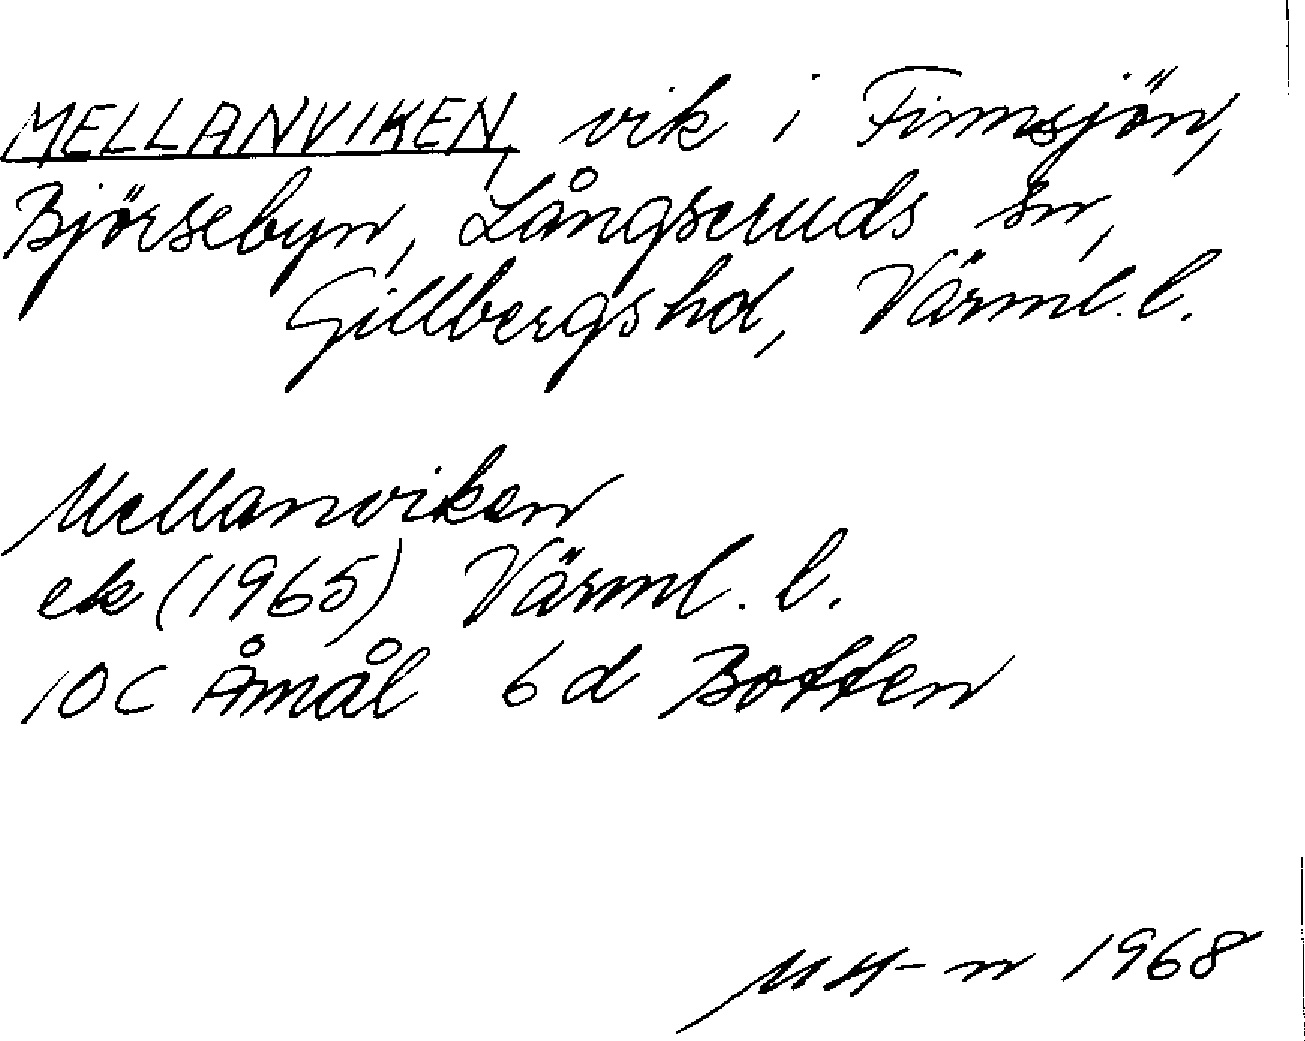 MELLANVIKEN, vik i Finnsjön,
Björsebyn, Långseruds sn,
Gillbergs hd, Värml. l.
Mellanviken
ek (1965) Värml. l.
10C Åmål 6d Botten
MH-n 1968